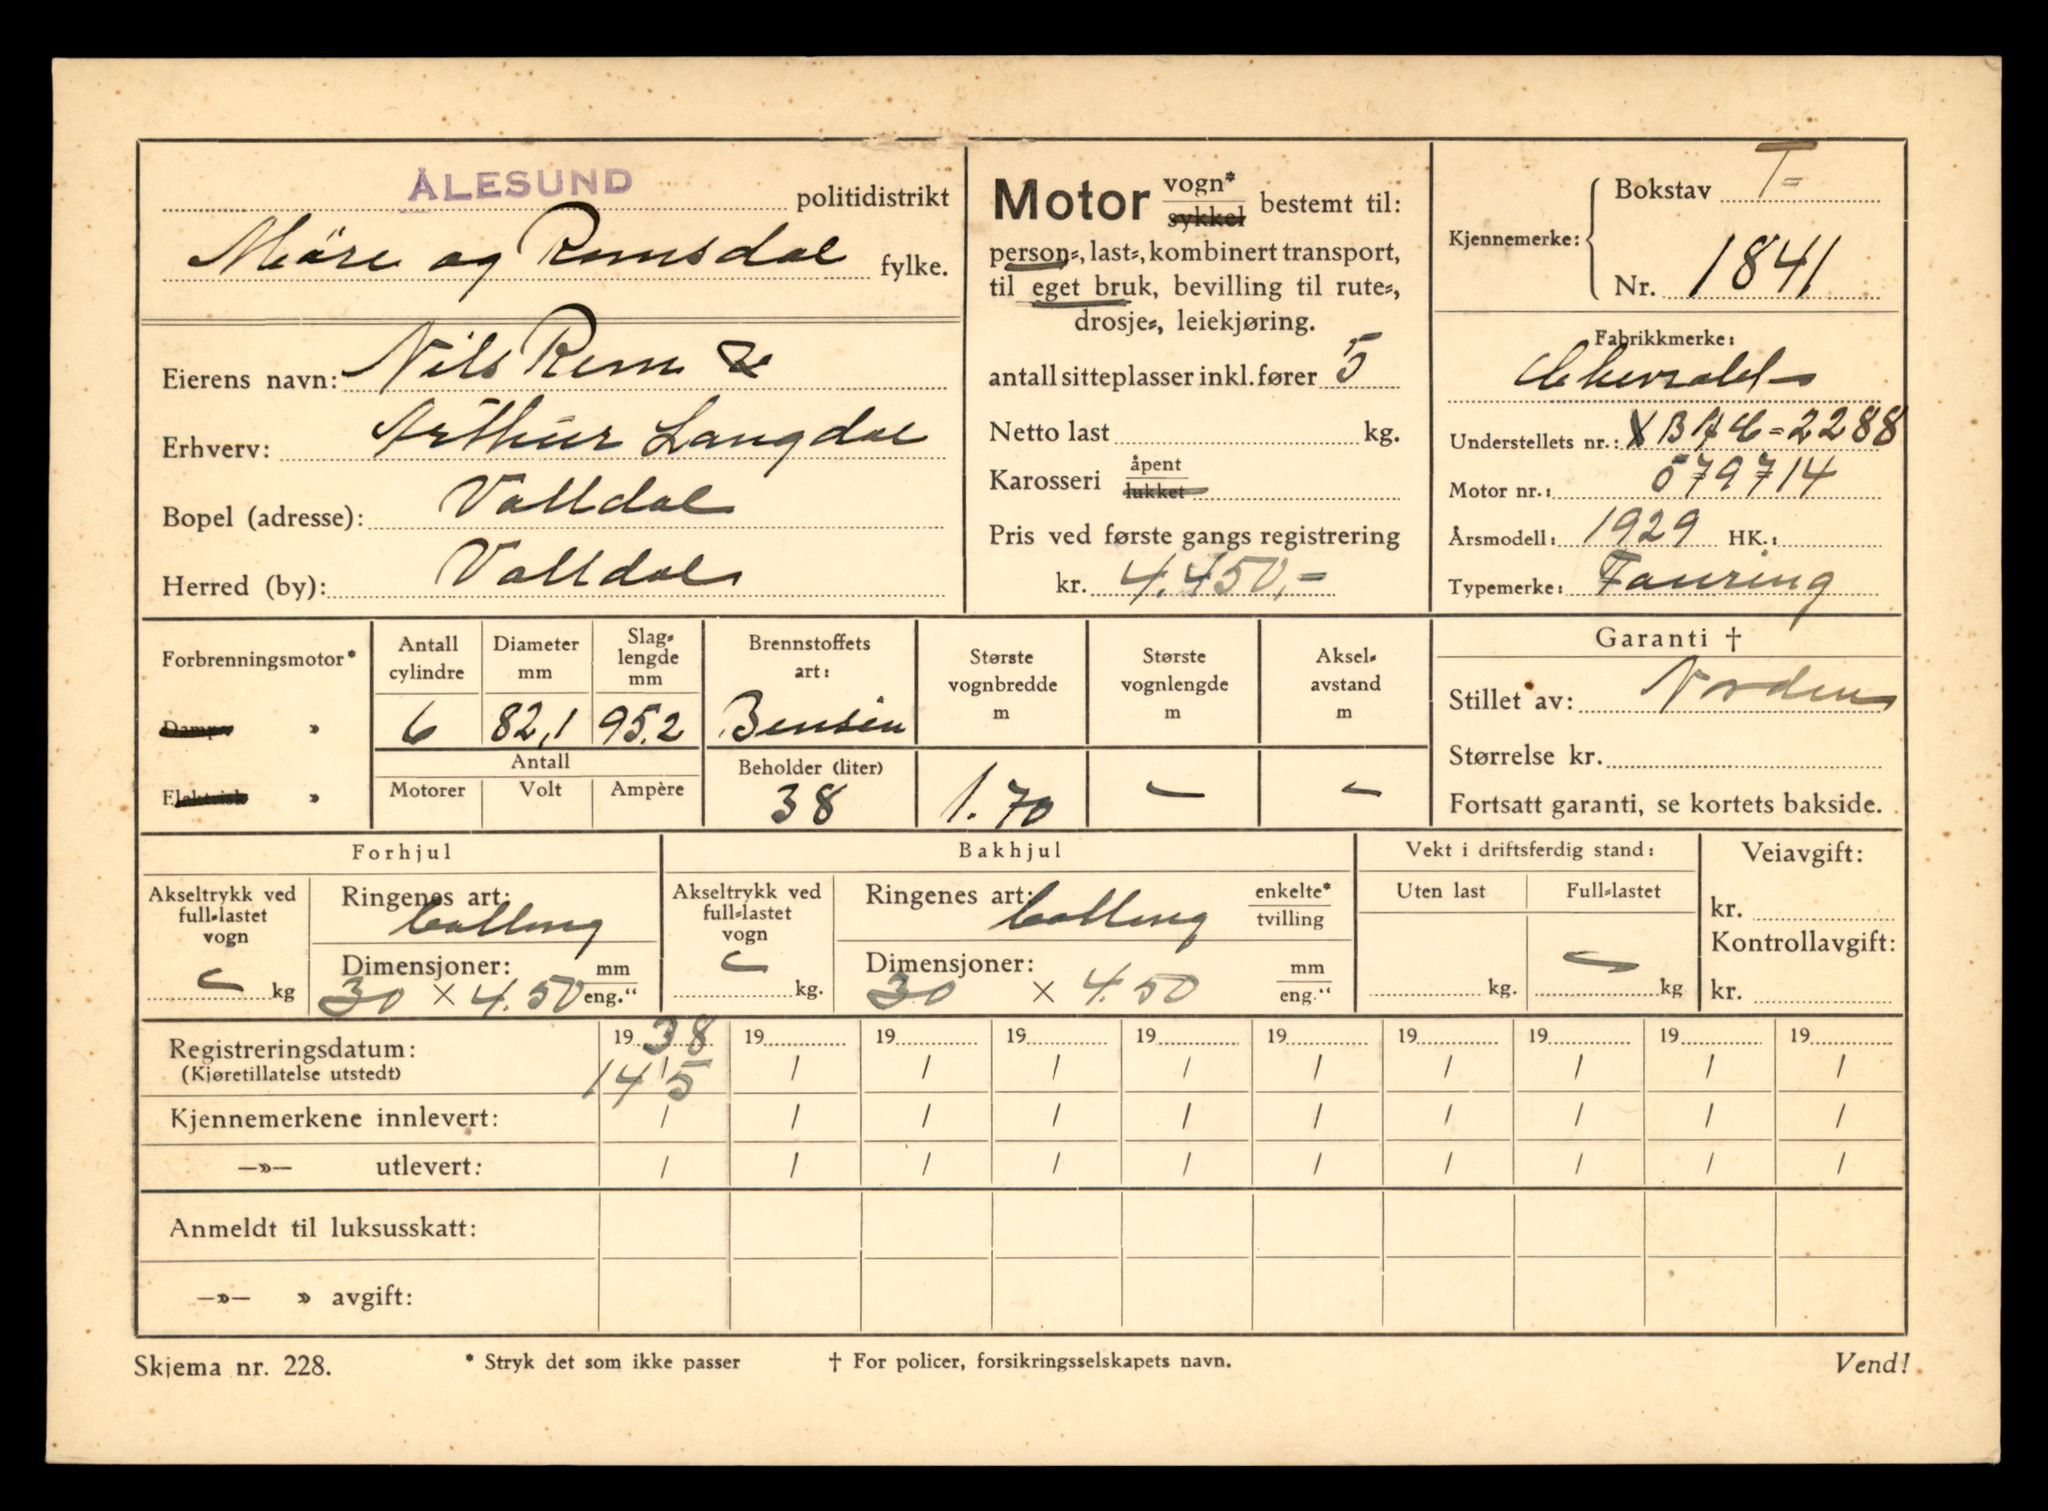 ÅLESUND politidistrikt
Möre og Romsdal fylke.
Eierens navn: Nils Rem &
Erhverv: Arthur Langdal
Bopel (adresse): Valldal
Herred (by): Valldal
Motor vogn* sykkel bestemt til:
person=, last=, kombinert transport,
til eget bruk, bevilling til rute=,
drosje=, leiekjøring.
antall sitteplasser inkl. fører 5
Netto last kg.
Karosseri åpent lukket
Pris ved første gangs registrering
kr. 4.450,-
Kjennemerke: Bokstav T=
Nr. 1841
Fabrikkmerke:
Chevrolet
Understellets nr.: 2288
Motor nr.: 579714
Årsmodell: 1929 HK.:
Typemerke: Touring
Forbrenningsmotor*
Damp= »
Elektrisk »
Antall cylindre
Diameter mm
Slag=
lengde
mm
6 82,1 95.2
Antall
Motorer Volt Ampère
Brennstoffets
art:
Bensin
Beholder (liter)
38
Største
vognbredde
m
1.70
Største
vognlengde
m
—
Aksel=
avstand
m
—
Garanti †
Stillet av: Norden
Størrelse kr.
Fortsatt garanti, se kortets bakside.
Forhjul
Akseltrykk ved
full=lastet
vogn
— kg
Ringenes art:
ballong
Dimensjoner: mm
30 × 4.50 eng.“
Bakhjul
Akseltrykk ved
full=lastet
vogn
— kg.
Ringenes art: enkelte*
ballong tvilling
Dimensjoner: mm
30 × 4.50 eng.“
Vekt i driftsferdig stand:
Uten last Full=lastet
kg. — kg
Veiavgift:
kr.
Kontrollavgift:
kr.
19 38 19 19 19 19 19 19 19 19 19
Registreringsdatum: 14/5 / / / / / / / / /
(Kjøretillatelse utstedt)
Kjennemerkene innlevert: / / / / / / / / / /
—»— utlevert: / / / / / / / / / /
Anmeldt til luksusskatt:
—»— » avgift:
Skjema nr. 228. * Stryk det som ikke passer † For policer, forsikringsselskapets navn. Vend!